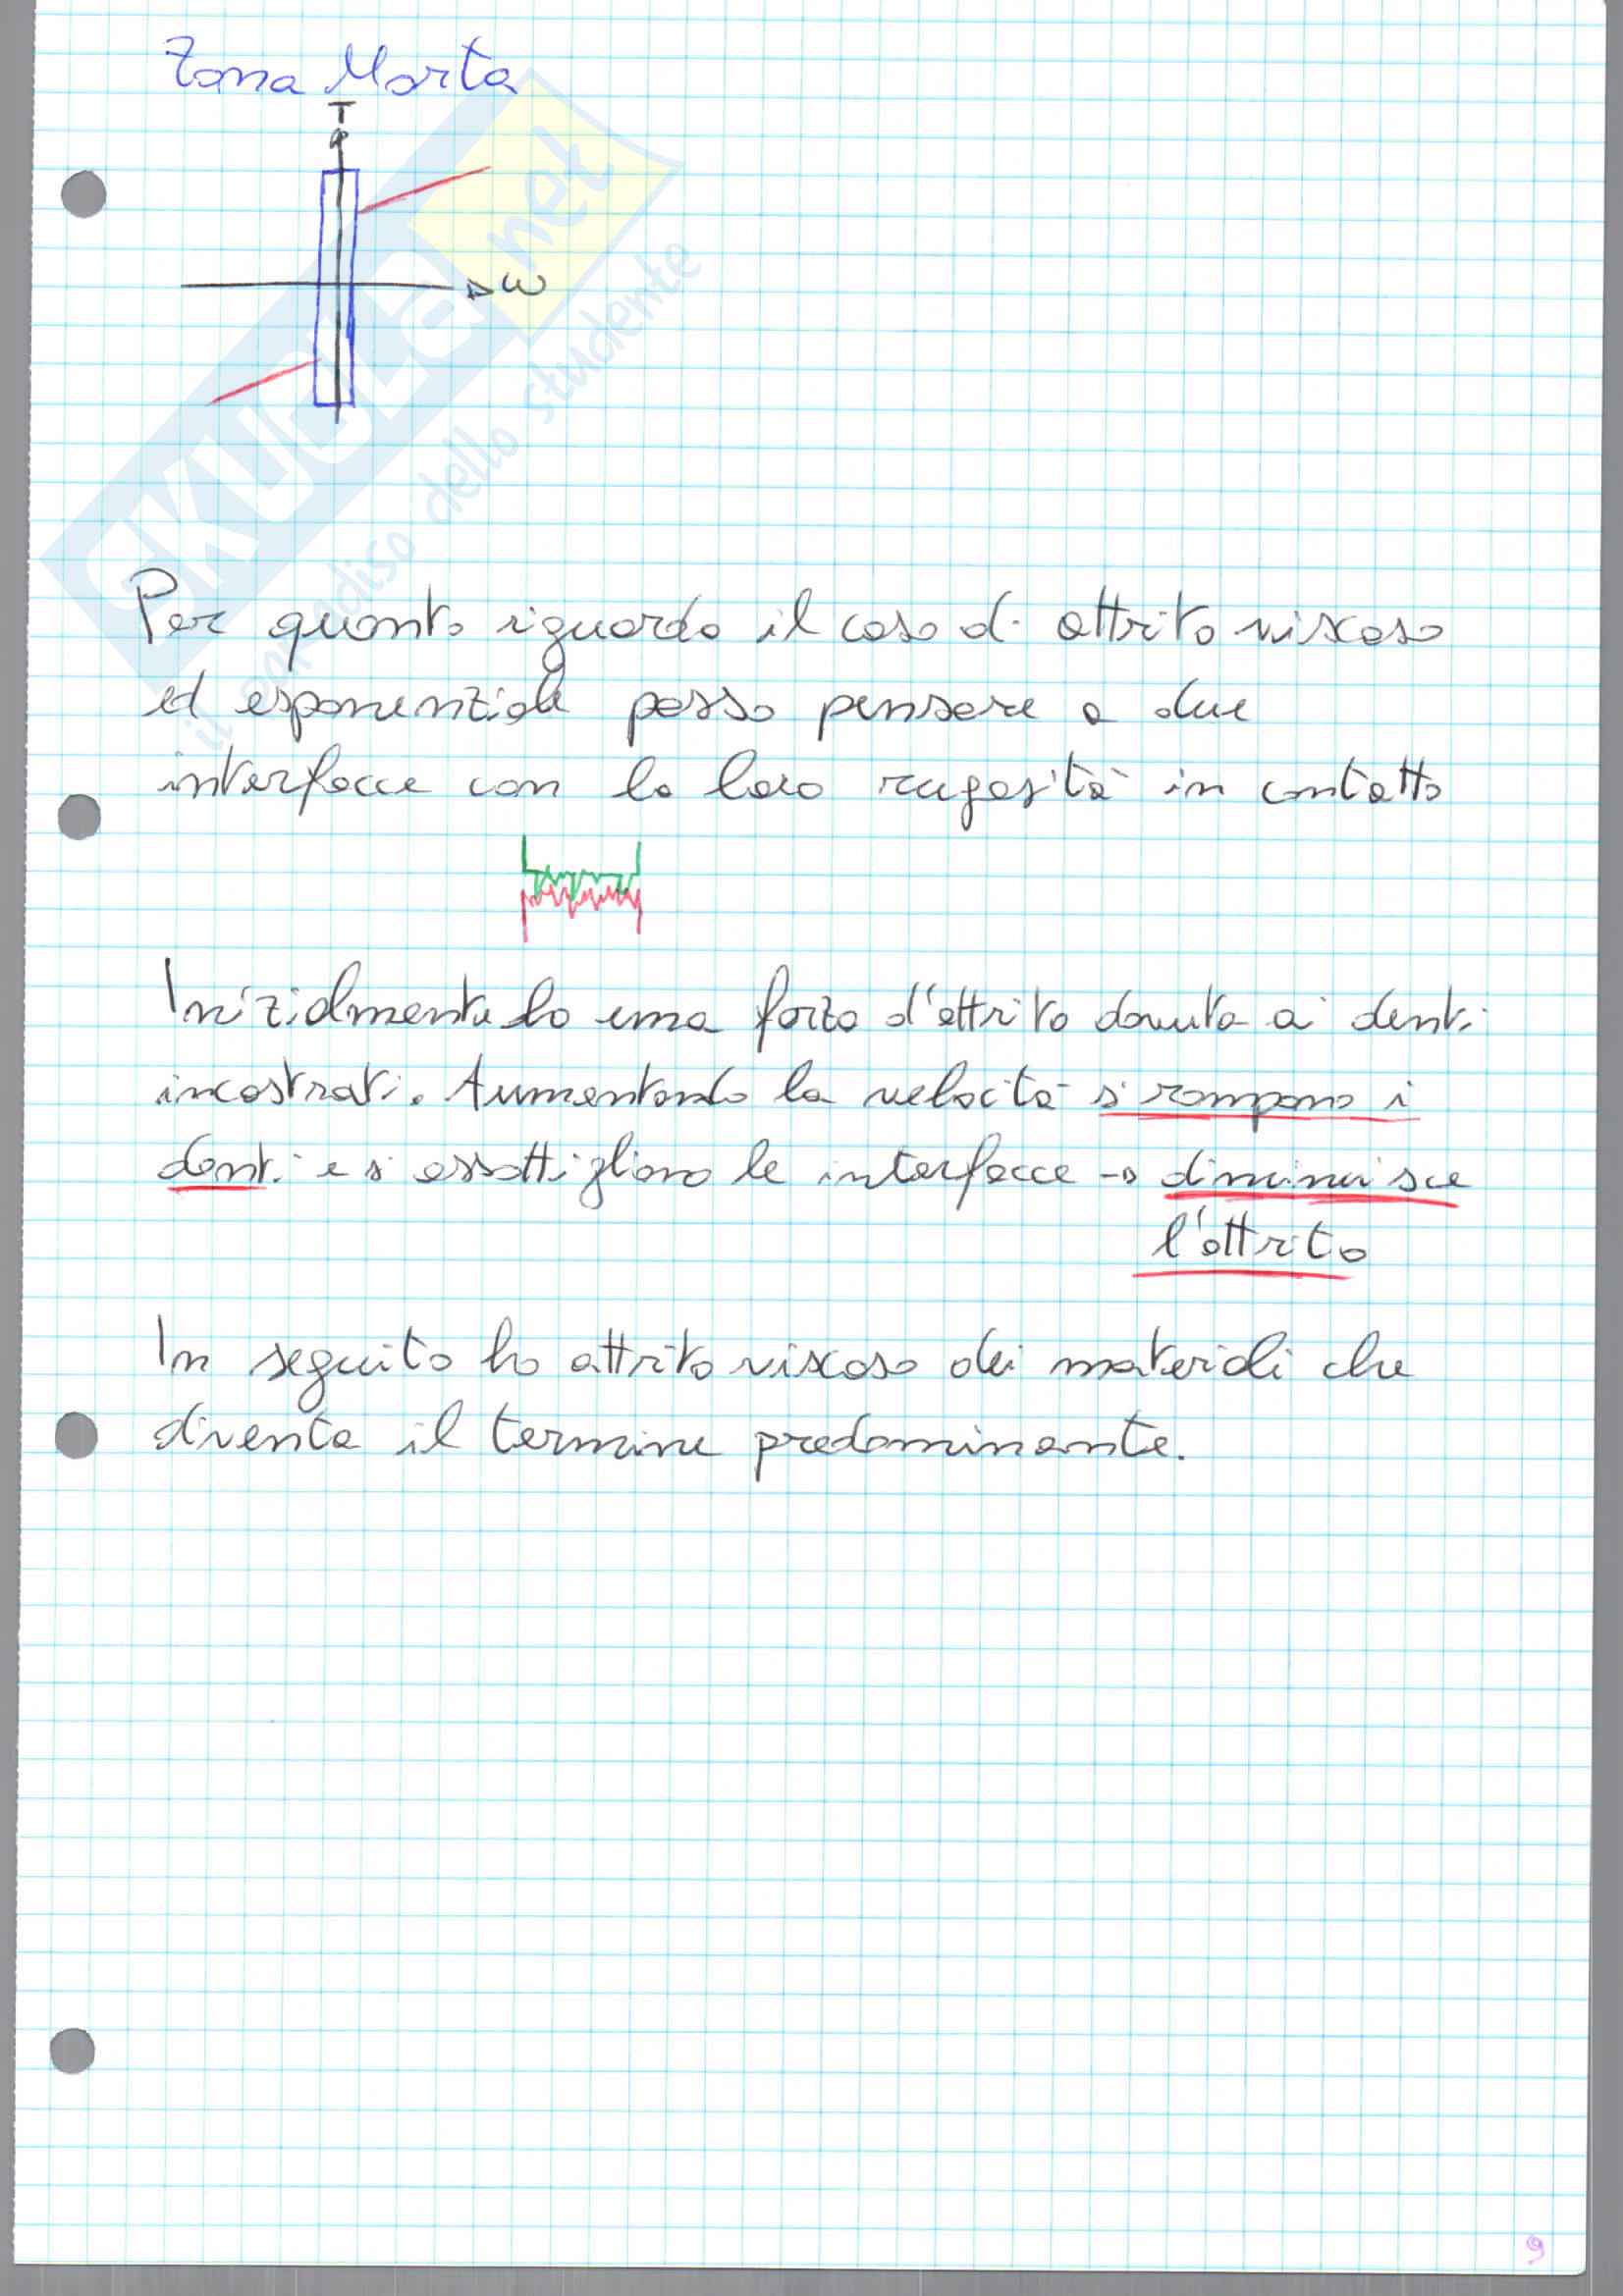 Zona Morta
T
ω
SKUOLA.net
il paradiso dello studente
Per quanto riguarda il caso di attrito viscoso
ed esponenziale posso pensare a due
interfacce con la loro rugosità in contatto
Inizialmente ho una forza d'attrito dovuta ai denti
incastrati. Aumentando la velocità si rompono i
denti e si assottigliano le interfacce → diminuisce
l'attrito
In seguito ho attrito viscoso dei materiali che
diventa il termine predominante.
9